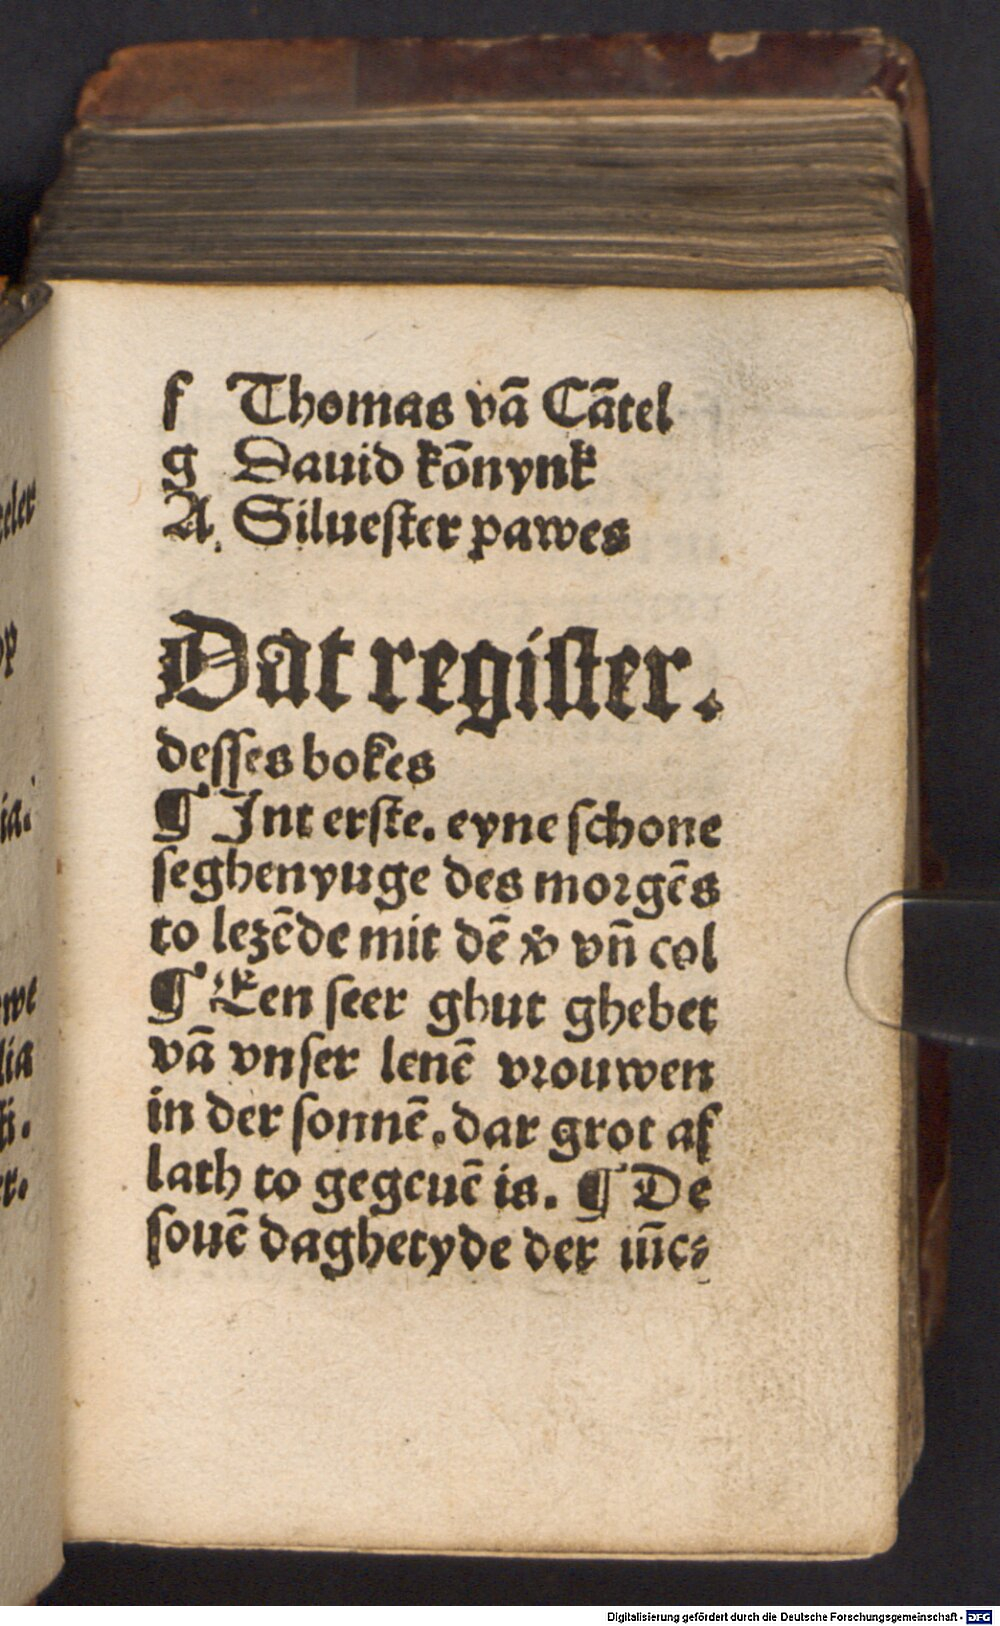 f Thomas vā Cātel
g Dauid kōnynk
A. Silueſter pawes
Dat regiſter.
deſſes bokes
¶ Int erſte. eyne ſchone
ſeghenyuge des morgēs
to lezēde mit dē v̓ vn̄ col
¶ Een ſeer ghut ghebet
vā vnſer lenē vrouwen
in der ſonnē. dar grot af
lath to gegeuē is. ¶ De
ſouē daghetyde der m̄c⸗
Digitalisierung gefördert durch die Deutsche Forschungsgemeinschaft - DFG